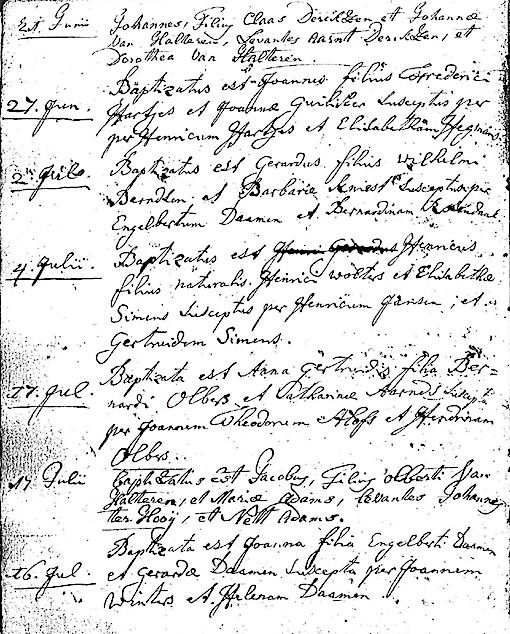 21. Junii Johannes, Filius Claas Dericksen et Johannae
Van Halteren, Levantes Aarnt Dericksen, et
Dorothea Van Halteren.
Baptizatus est Joannes filius Frederici
27. Jun. Hartjes et Joannae Susceptus per
per Henricum Hartjes et Elisabetham
2. Baptizatus est Gerardus filius Wilhelmi
Berndsen et Barbarae Susceptus per
Engelbertum Daamen et Bernardinam
4. Julii Baptizatus est Henricus
filius naturalis Henrici Wolters et Elisabethae
Simens Susceptus per Henricum Jansen, et
Gertruidem Simens.
Baptizata est Anna Gertrudis filia Ber=
17. Jul. nardi Olbers et Catharinae Suscept
per Joannem Theodorum et Hendrinam
Olbers.
Julii baptizatus est Jacobus, Filius olberti Van
Halteren, et Mariae Adams, levantes Johannes
ter Hooij, et Nett Adams.
Baptizata est Joanna filia Engelberti Daamen
16. Jul. et Gerardae Daamen Suscepta per Joannem
Winters et Helenam Daamen